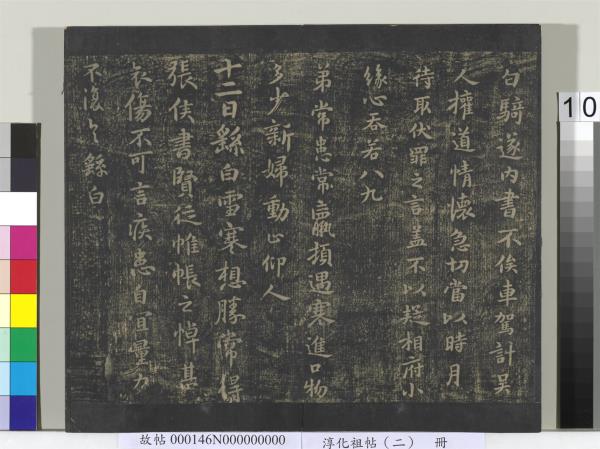 白騎遂內書不俟車駕計吳
人權道情懷急切當以時月
待取伏罪之言蓋不以趍相府小
緣心吞若八九
弟常患常羸頓遇寒進口物
多少新婦動止仰人
十二日繇白雪寒想勝常得
張侯書賢從帷帳之悼甚
哀傷不可言疾患自宜量力
不復具繇白
10
故帖 000146N000000000
淳化祖帖（二） 冊